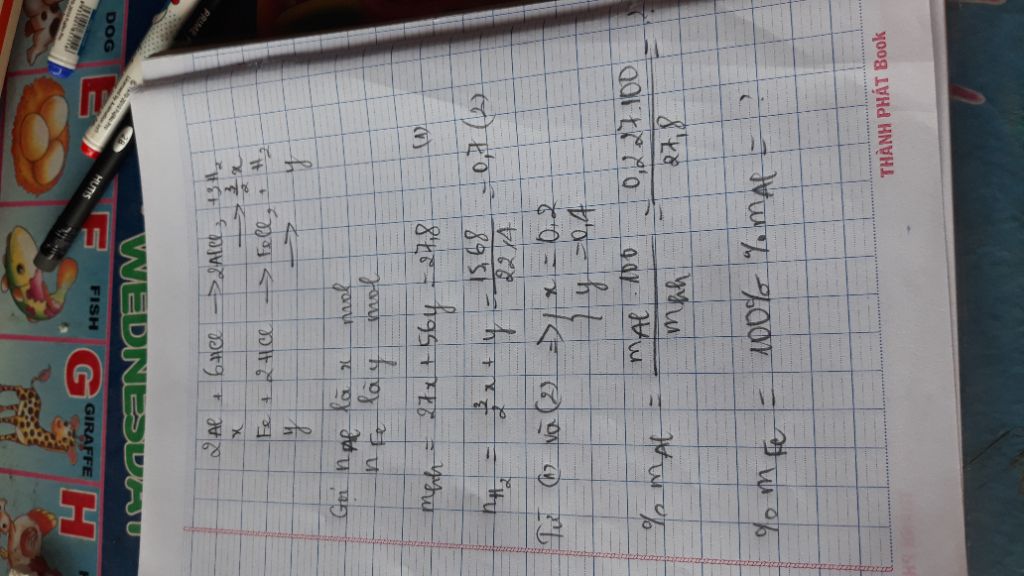 2Al + 6HCl → 2AlCl3 + 3H2
x → 3/2 x
Fe + 2HCl → FeCl2 + H2
y → y
Gọi nAl là x mol
nFe là y mol
mhh = 27x + 56y = 27,8 (1)
nH2 = 3/2 x + y = 15,68/22,4 = 0,7 (2)
Từ (1) và (2) => { x = 0,2
y = 0,4
% mAl = mAl . 100 / mhh = 0,2.27.100 / 27,8 = ?
% mFe = 100% - % mAl = ?
THÀNH PHÁT Book
DOG
E
F
FISH
G
GIRAFFE
H
WEDNESDAY